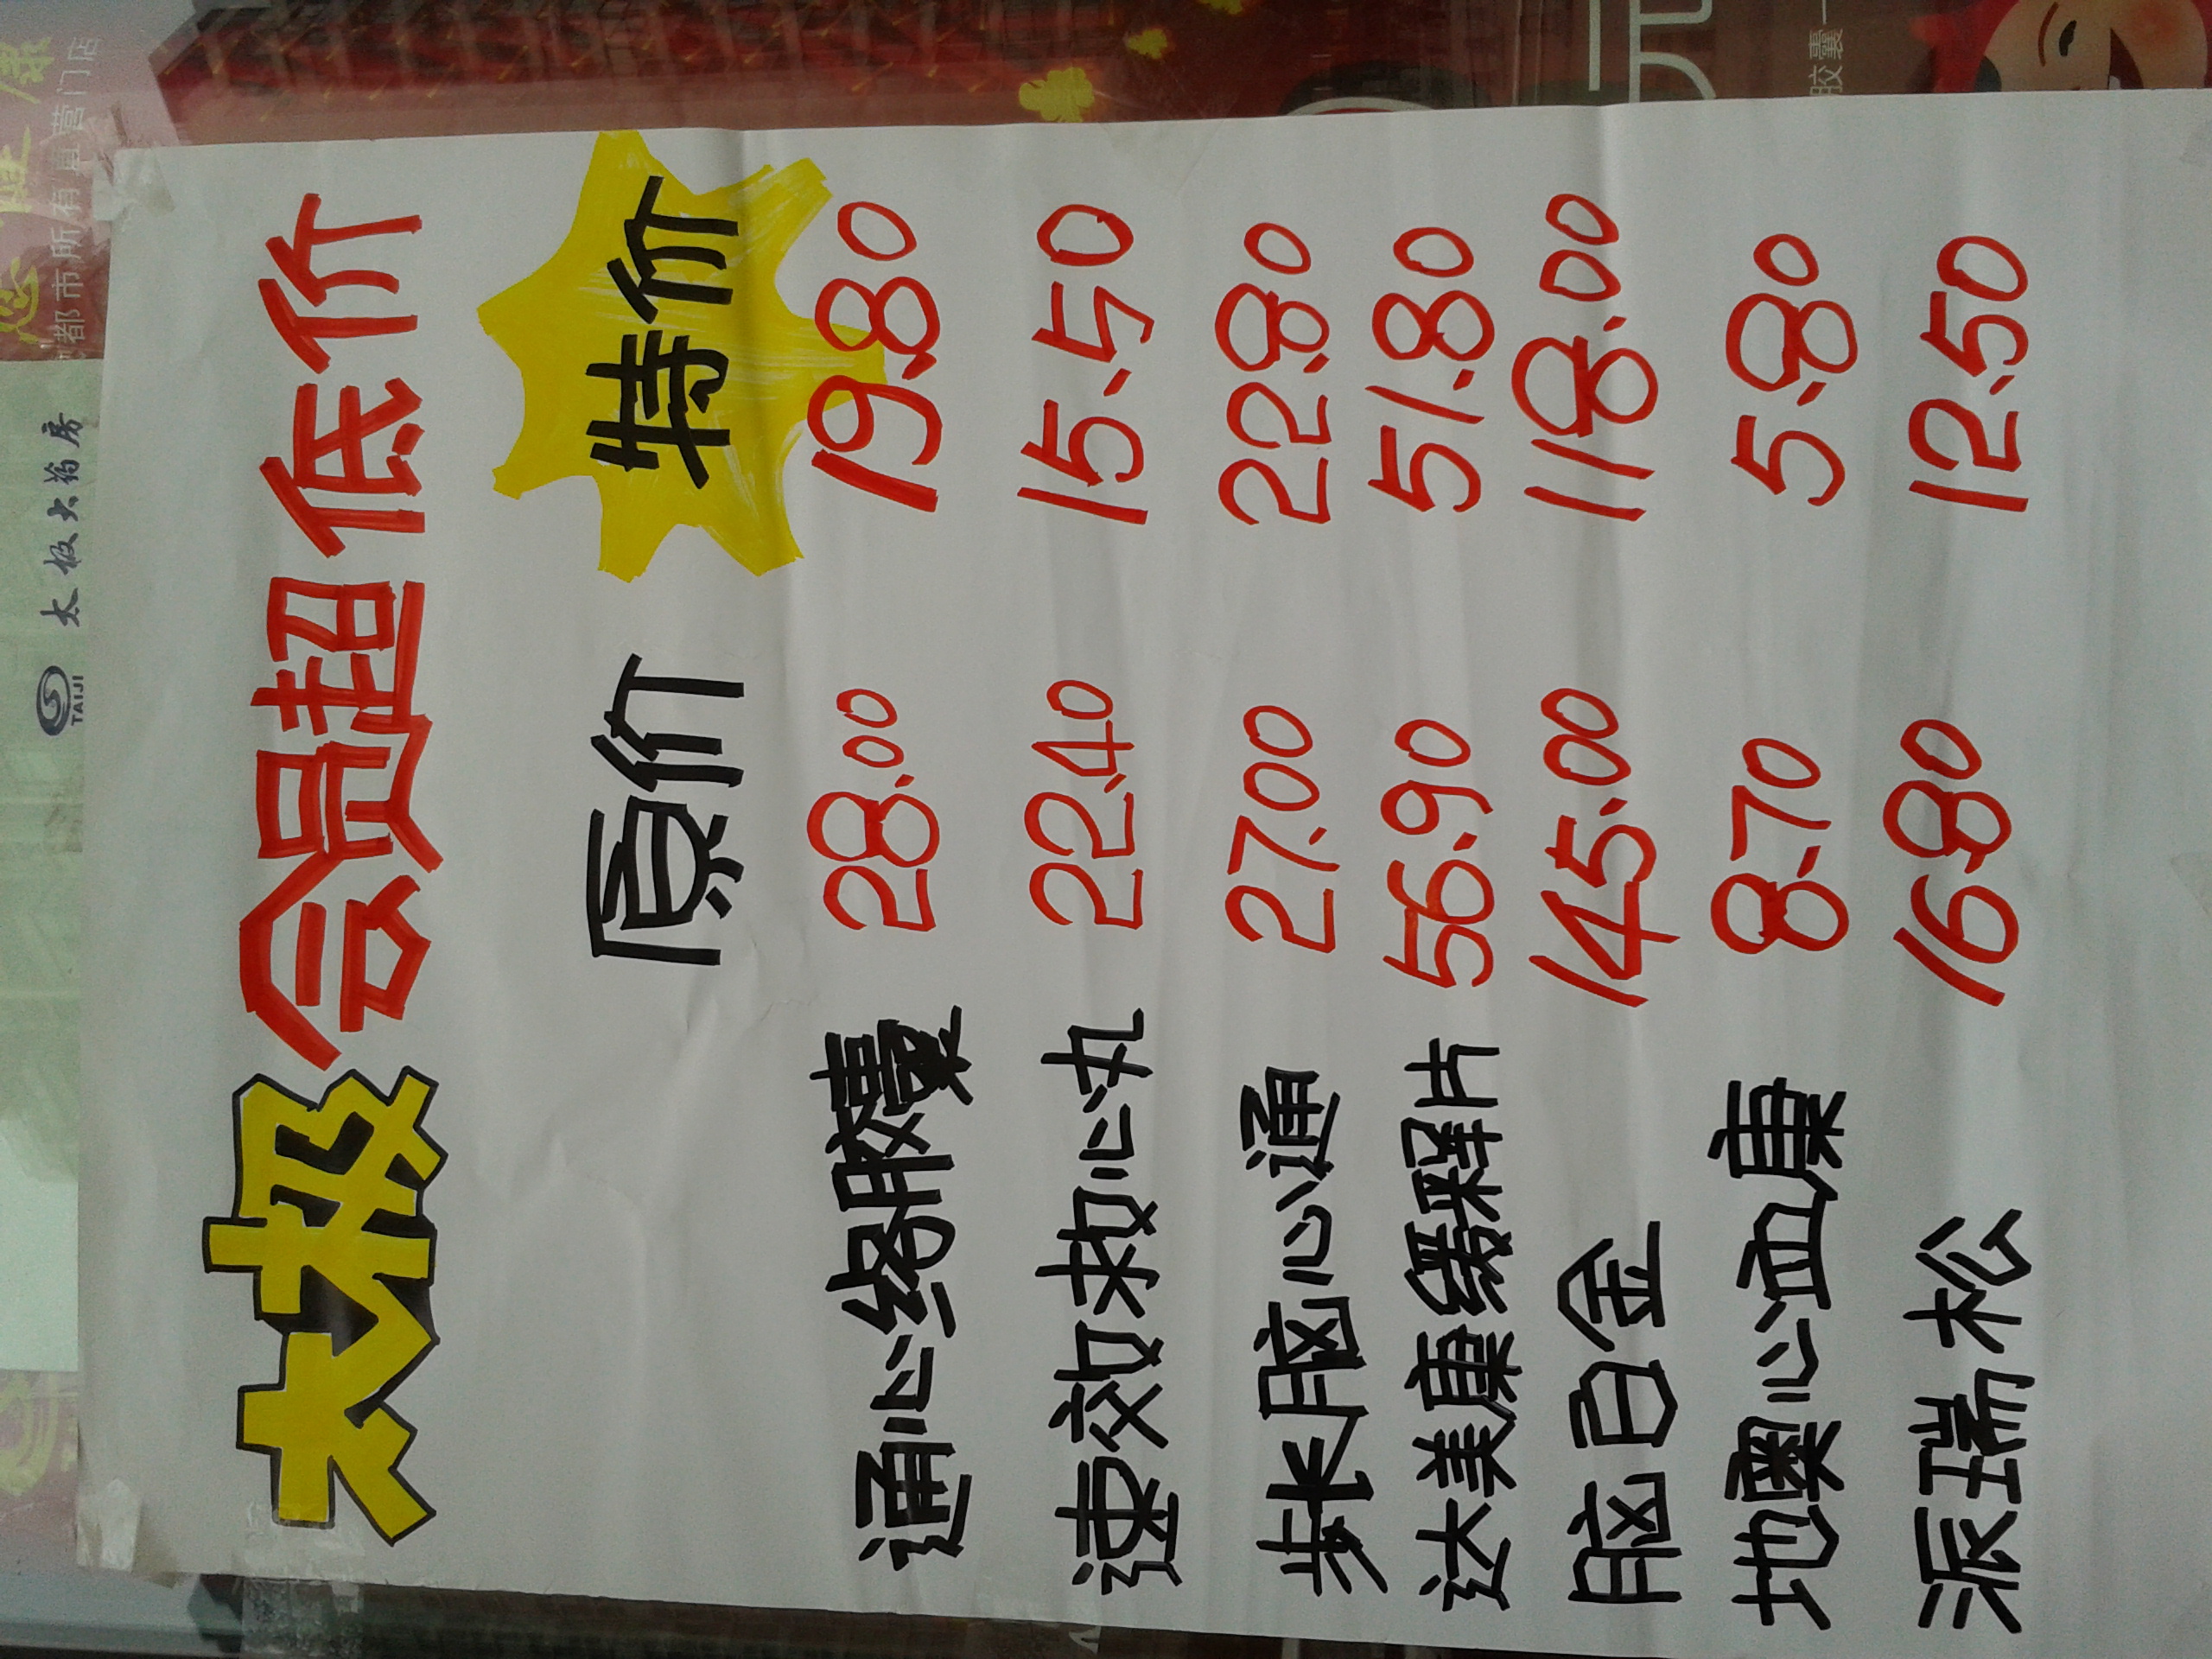 太极会员超低价
原价 特价
通心络胶囊 28.00 19.80
速效救心丸 22.40 15.50
步长脑心通 27.00 22.80
达美康缓释片 56.90 51.80
脑白金 145.00 118.00
地奥心血康 8.70 5.80
派瑞松 16.80 12.50
TAIJI 太极大药房
都市所有直营门店
元
胶囊